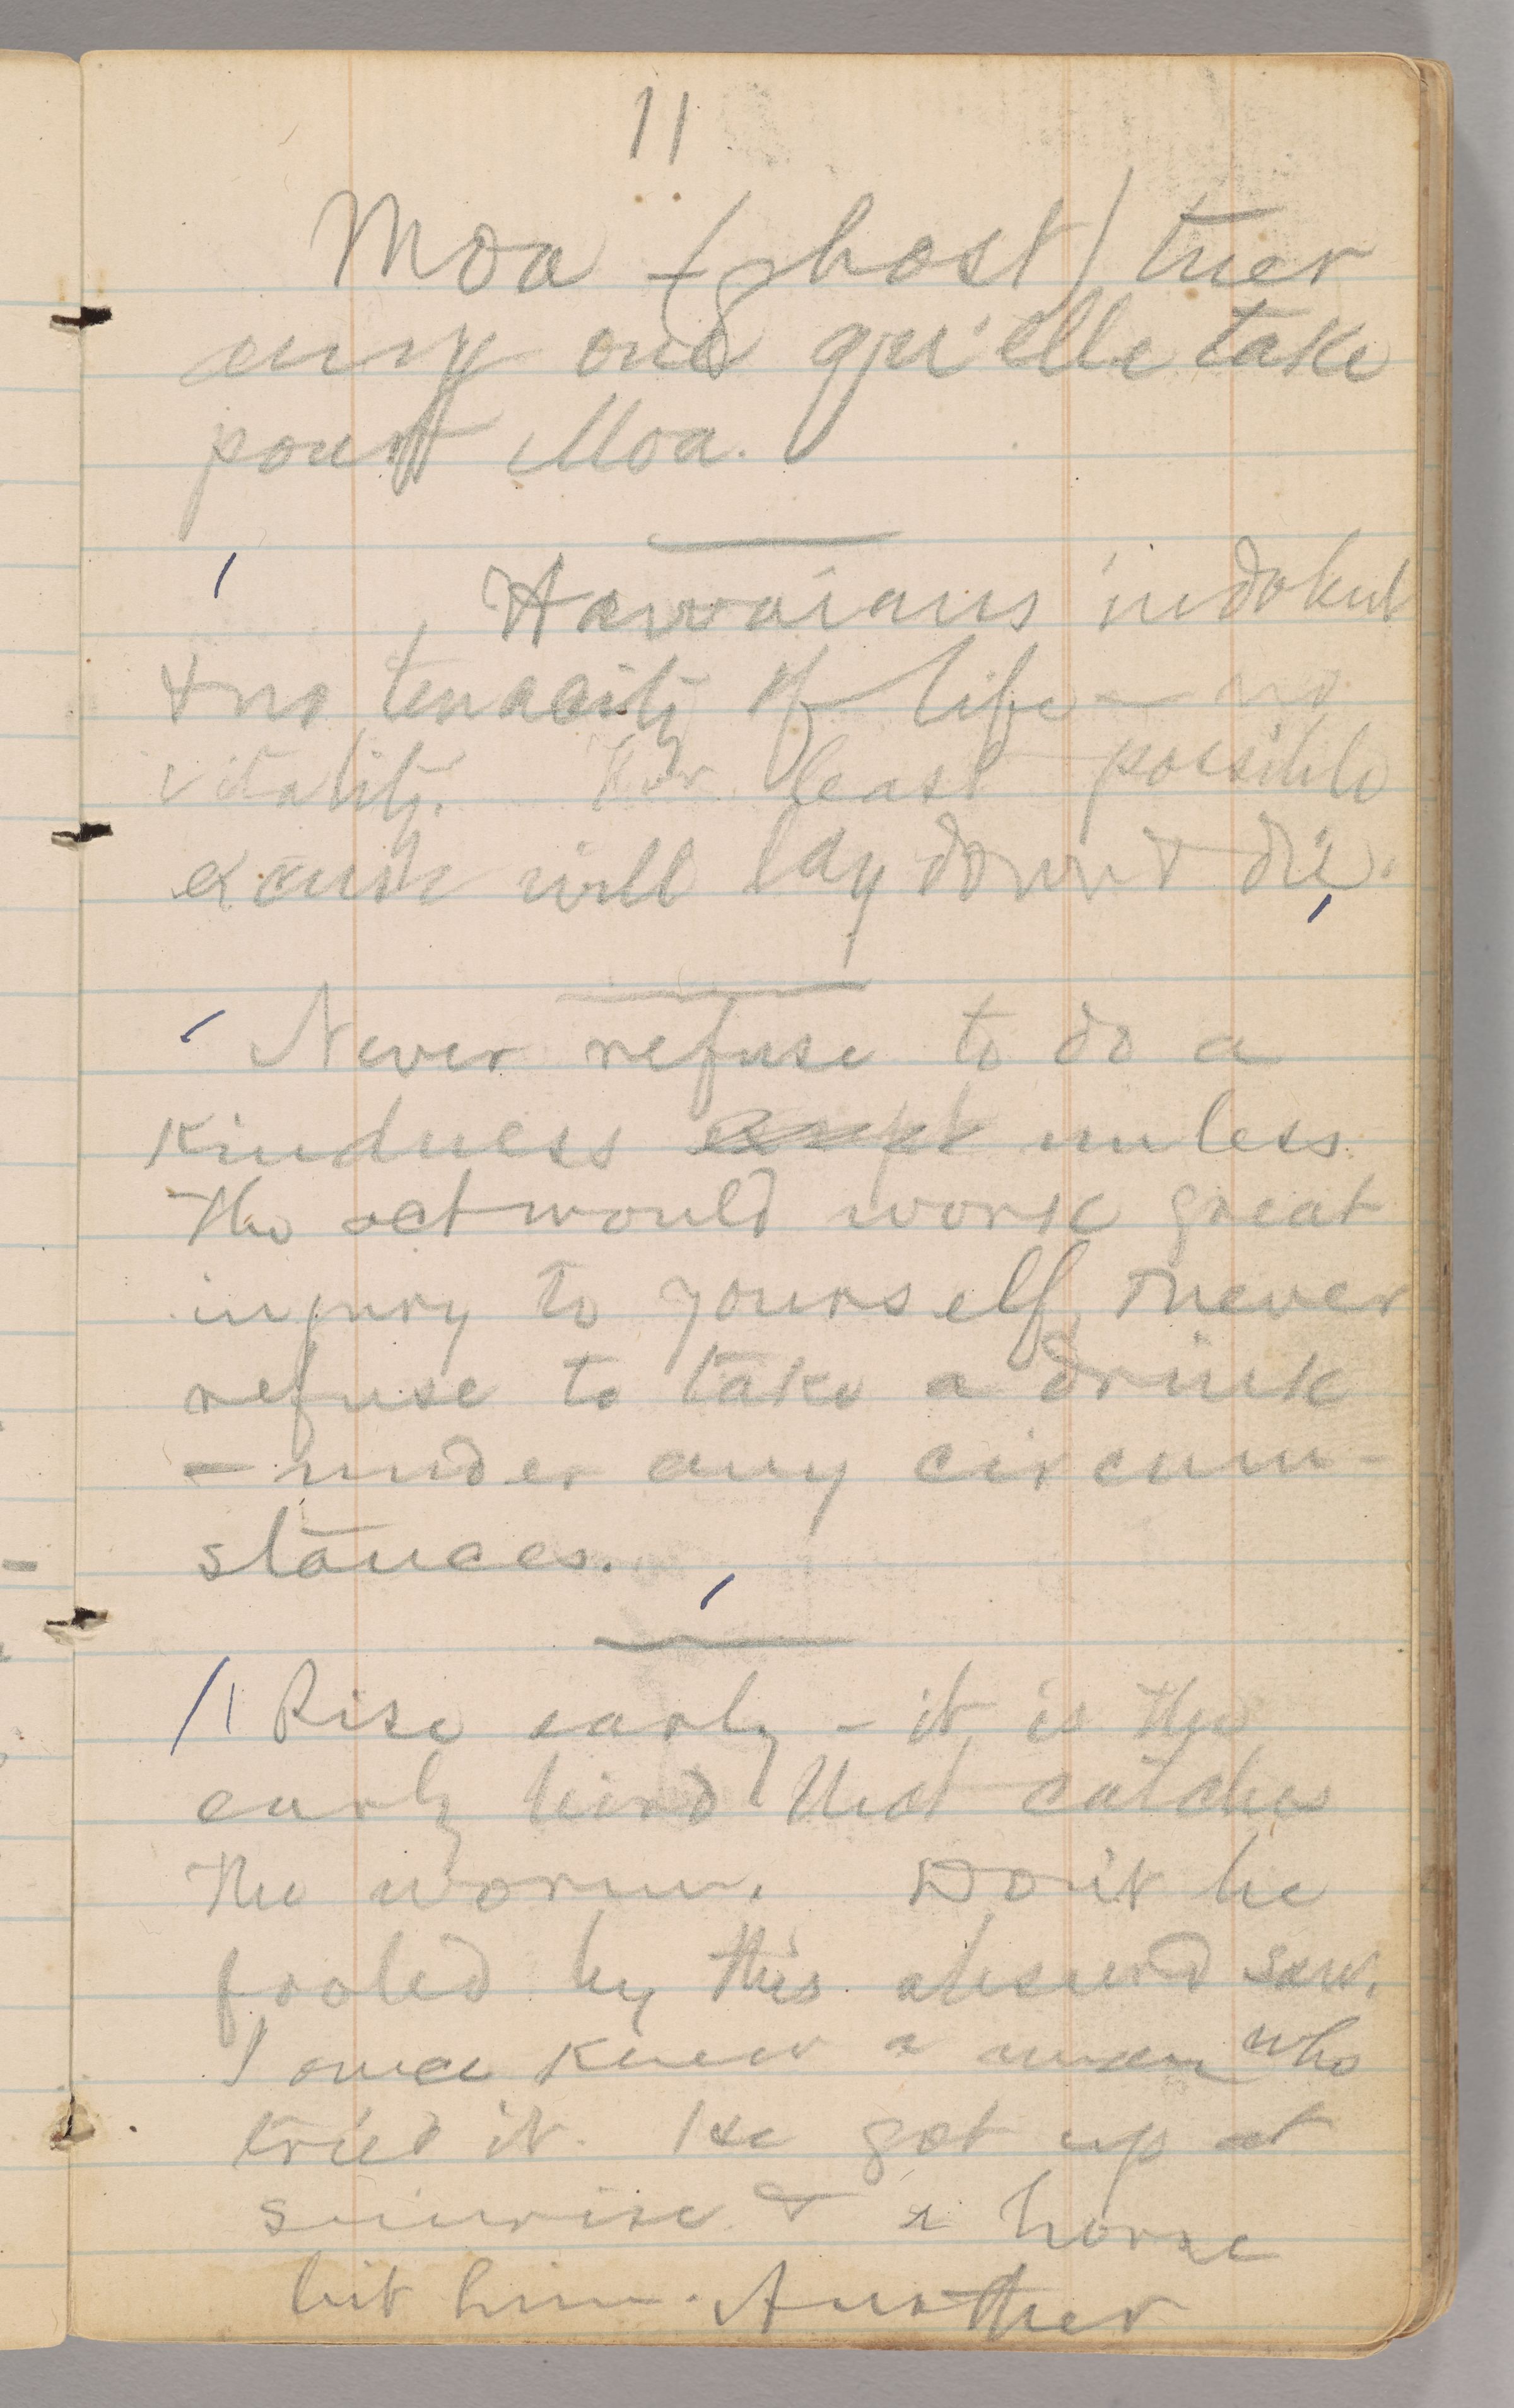 11
Moa – (ghost) tuer
any one qu'elle take
pour Moa.
Hawaians indolent
& no tenacity of life – no
vitality. For least possible
excuse will lay down & die.
Never refuse to do a
kindness except unless
the act would work great
injury to yourself, & never
refuse to take a drink
– under any circum-
stances.
Rise early – it is the
early bird that catches
the worm. Don't be
fooled by this absurd saw.
I once knew a man who
tried it. He got up at
sunrise & a horse
bit him. Another